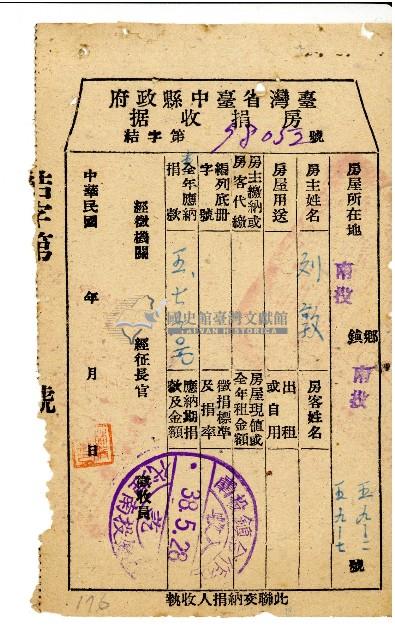 臺灣省臺中縣政府
房捐收据
結字第98053號
房屋所在地 南投 鄉鎮 南投 五九-二 五九-七 號
房主姓名 劉敦 房客姓名
房屋用途 出租或自用
房主繳納或房客代繳 房屋現值或全年租金額
編列底冊字號 徵捐標準及捐率
全年應納捐款 應納期捐數及金額
五七号
經徵機關 經征長官
徵收員
中華民國 年 月 日
38.5.28
結字第 號
此聯交納捐人收執
176
國史館臺灣文獻館
TAIWAN HISTORICA